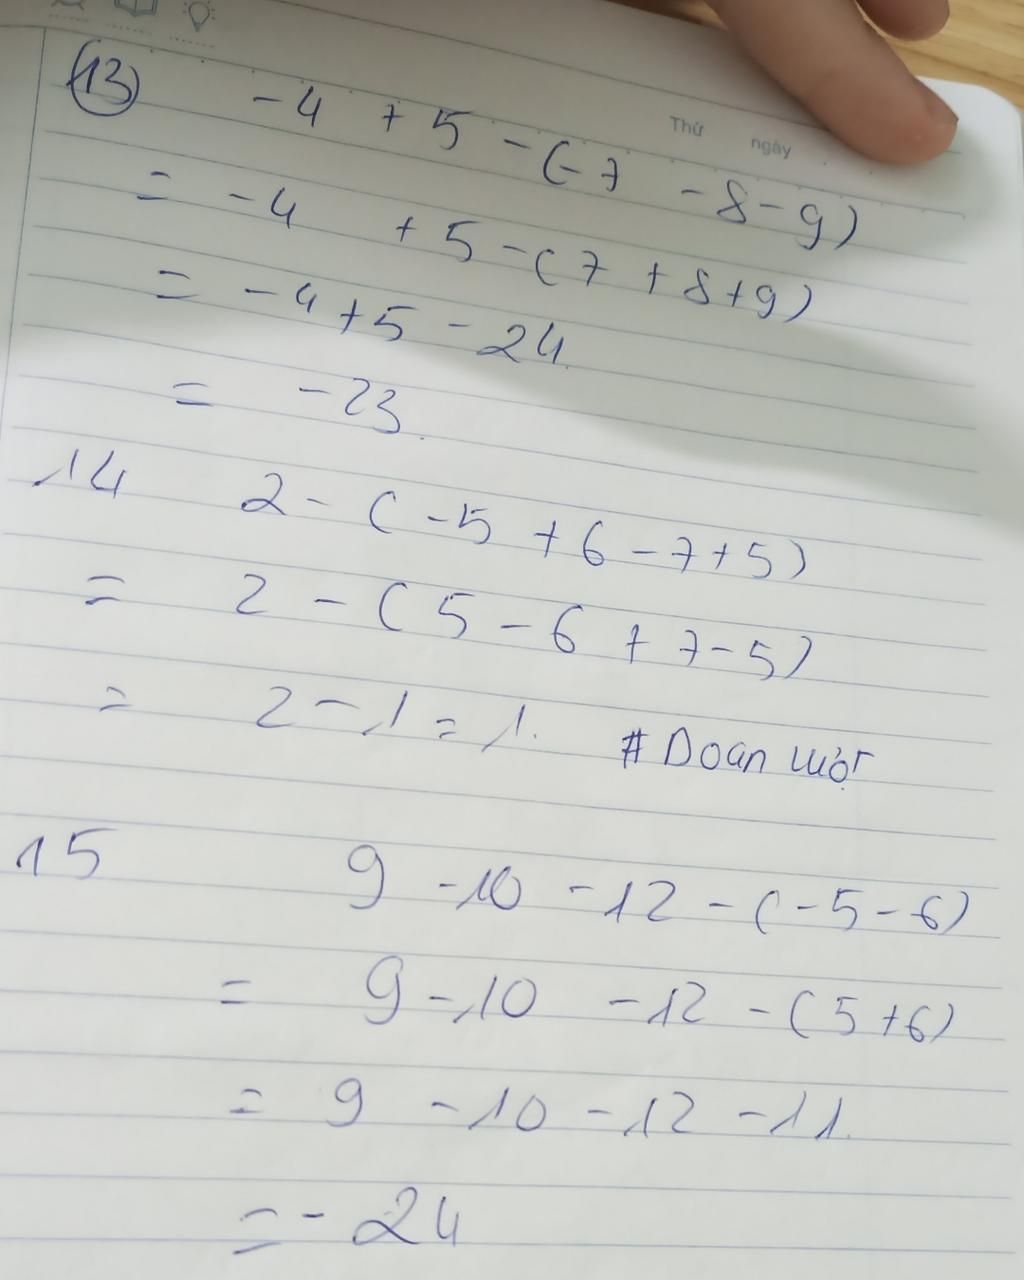 Thứ ngày
13 -4 + 5 - (-7 - 8 - 9)
= -4 + 5 - (7 + 8 + 9)
= -4 + 5 - 24
= -23.
14 2 - (-5 + 6 - 7 + 5)
= 2 - (5 - 6 + 7 - 5)
= 2 - 1 = 1. # Doan
15 9 - 10 - 12 - (-5 - 6)
= 9 - 10 - 12 - (5 + 6)
= 9 - 10 - 12 - 11.
= - 24